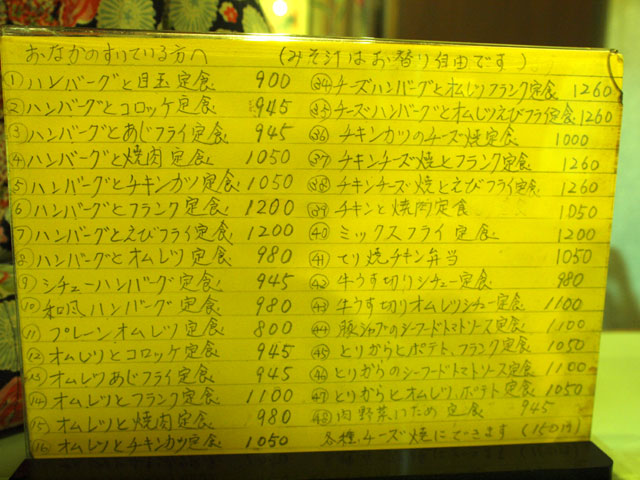 おなかのすいている方へ (みそ汁はお替り自由です)
① ハンバーグと目玉定食 900
② ハンバーグとコロッケ定食 945
③ ハンバーグとあじフライ定食 945
④ ハンバーグと焼肉定食 1050
⑤ ハンバーグとチキンカツ定食 1050
⑥ ハンバーグとフランク定食 1200
⑦ ハンバーグとえびフライ定食 1200
⑧ ハンバーグとオムレツ定食 980
⑨ シチューハンバーグ定食 945
⑩ 和風ハンバーグ定食 980
⑪ プレーンオムレツ定食 800
⑫ オムレツとコロッケ定食 945
⑬ オムレツあじフライ定食 945
⑭ オムレツとフランク定食 1100
⑮ オムレツと焼肉定食 980
⑯ オムレツとチキンカツ定食 1050
㉞ チーズハンバーグとオムレツフランク定食 1260
㉟ チーズハンバーグとオムレツえびフライ定食 1260
㊱ チキンカツのチーズ焼定食 1000
㊲ チキンチーズ焼とフランク定食 1260
㊳ チキンチーズ焼とえびフライ定食 1260
㊴ チキンと焼肉定食 1050
㊵ ミックスフライ定食 1200
㊶ てり焼チキン弁当 1050
㊷ 牛うす切りシチュー定食 980
㊸ 牛うす切りオムレツシチュー定食 1100
㊹ 豚シャブのシーフードトマトソース定食 1100
㊺ とりからとポテト、フランク定食 1050
㊻ とりからのシーフードトマトソース定食 1100
㊼ とりからとオムレツ、ポテト定食 1050
㊽ 肉野菜いため定食 945
各種チーズ焼にできます (150円)